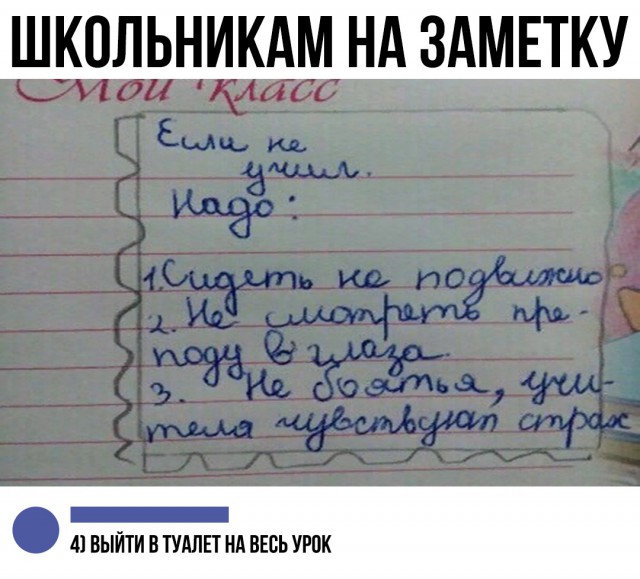 ШКОЛЬНИКАМ НА ЗАМЕТКУ
Мой класс
Если не
учил.
Надо:
1. Сидеть не подвижно
2. Не смотреть пре-
поду в глаза.
3. Не боятья, учи-
теля чувствуют страх
4) ВЫЙТИ В ТУАЛЕТ НА ВЕСЬ УРОК